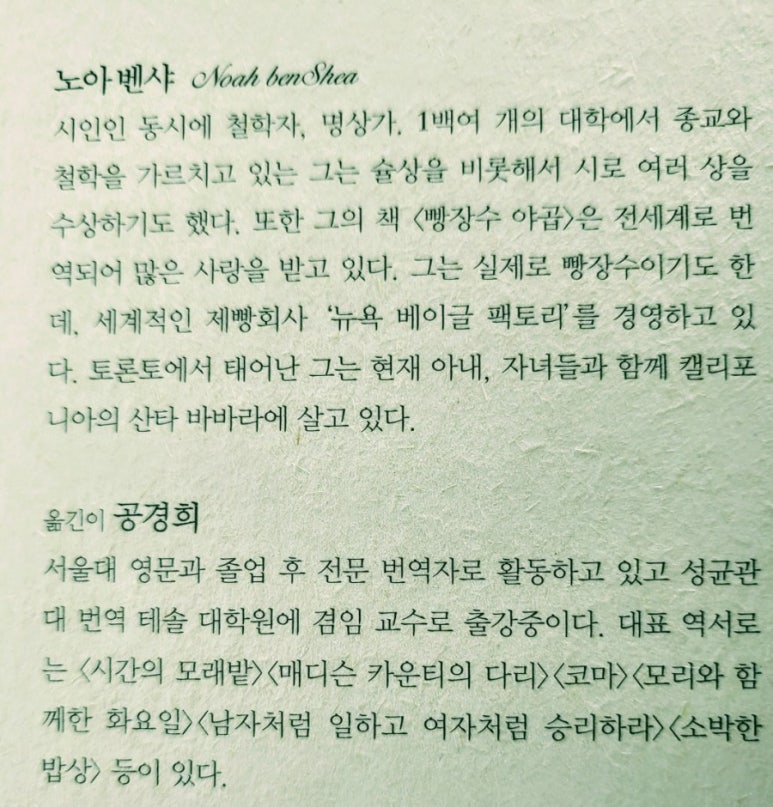 노아 벤샤 Noah benShea
시인인 동시에 철학자, 명상가. 1백여 개의 대학에서 종교와
철학을 가르치고 있는 그는 슐상을 비롯해서 시로 여러 상을
수상하기도 했다. 또한 그의 책 〈빵장수 야곱〉은 전세계로 번
역되어 많은 사랑을 받고 있다. 그는 실제로 빵장수이기도 한
데, 세계적인 제빵회사 ‘뉴욕 베이글 팩토리’를 경영하고 있
다. 토론토에서 태어난 그는 현재 아내, 자녀들과 함께 캘리포
니아의 산타 바바라에 살고 있다.
옮긴이 공경희
서울대 영문과 졸업 후 전문 번역자로 활동하고 있고 성균관
대 번역 테솔 대학원에 겸임 교수로 출강중이다. 대표 역서로
는 〈시간의 모래밭〉〈매디슨 카운티의 다리〉〈코마〉〈모리와 함
께한 화요일〉〈남자처럼 일하고 여자처럼 승리하라〉〈소박한
밥상〉 등이 있다.